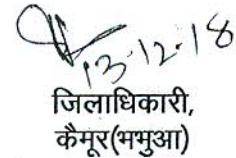 13-12-18
जिलाधिकारी,
कैमूर(भभुआ)